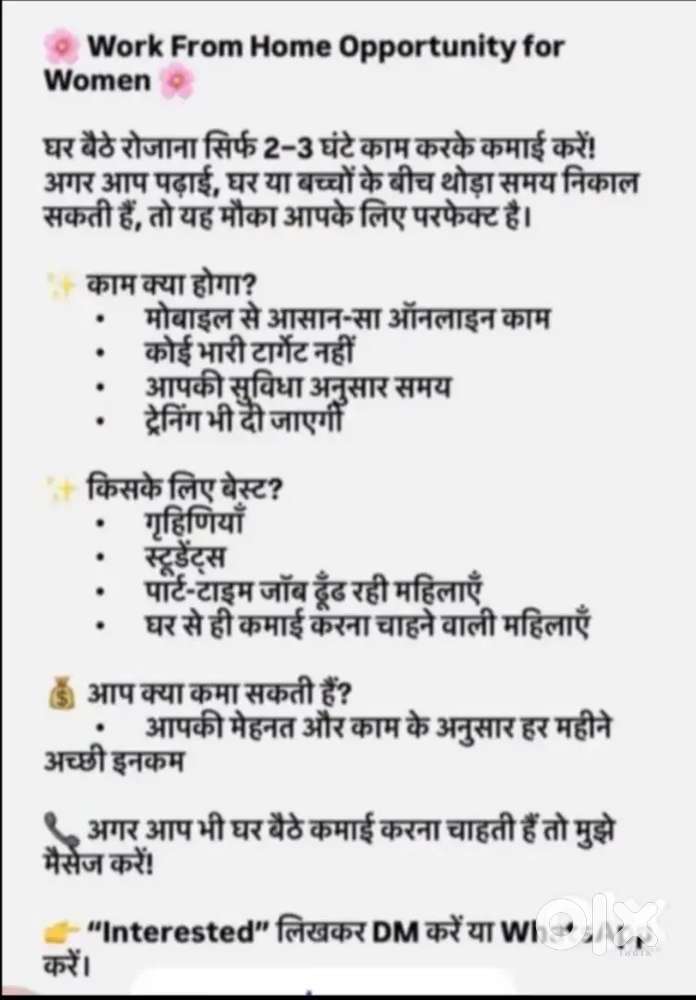 🌸 Work From Home Opportunity for
Women 🌸
घर बैठे रोजाना सिर्फ 2–3 घंटे काम करके कमाई करें!
अगर आप पढ़ाई, घर या बच्चों के बीच थोड़ा समय निकाल
सकती हैं, तो यह मौका आपके लिए परफेक्ट है।
✨ काम क्या होगा?
• मोबाइल से आसान-सा ऑनलाइन काम
• कोई भारी टार्गेट नहीं
• आपकी सुविधा अनुसार समय
• ट्रेनिंग भी दी जाएगी
✨ किसके लिए बेस्ट?
• गृहिणियाँ
• स्टूडेंट्स
• पार्ट-टाइम जॉब ढूँढ रही महिलाएँ
• घर से ही कमाई करना चाहने वाली महिलाएँ
💰 आप क्या कमा सकती हैं?
• आपकी मेहनत और काम के अनुसार हर महीने
अच्छी इनकम
📞 अगर आप भी घर बैठे कमाई करना चाहती हैं तो मुझे
मैसेज करें!
👉 “Interested” लिखकर DM करें या WhatsApp
करें।
olx